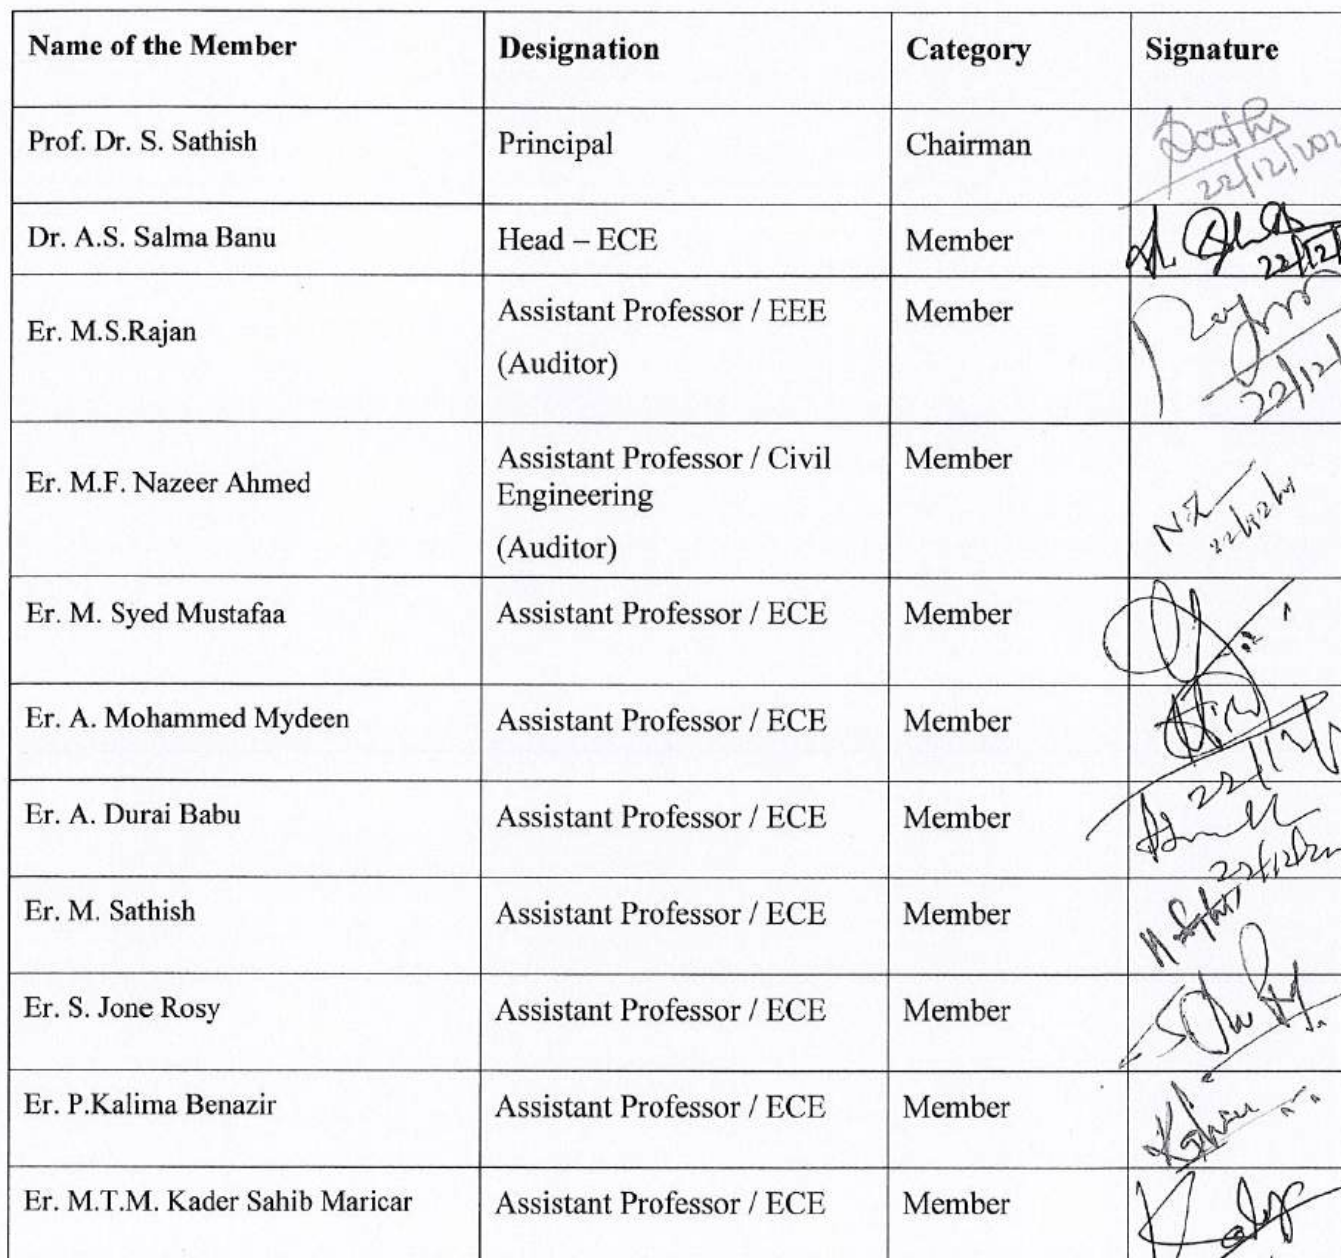 Name of the Member Designation Category Signature
Prof. Dr. S. Sathish Principal Chairman
22/12/202
Dr. A.S. Salma Banu Head – ECE Member
22/12/
Er. M.S.Rajan Assistant Professor / EEE Member
(Auditor)
22/12/
Er. M.F. Nazeer Ahmed Assistant Professor / Civil Member
Engineering
(Auditor)
Er. M. Syed Mustafaa Assistant Professor / ECE Member
Er. A. Mohammed Mydeen Assistant Professor / ECE Member
22/12/
Er. A. Durai Babu Assistant Professor / ECE Member
22/12/20
Er. M. Sathish Assistant Professor / ECE Member
Er. S. Jone Rosy Assistant Professor / ECE Member
Er. P.Kalima Benazir Assistant Professor / ECE Member
Er. M.T.M. Kader Sahib Maricar Assistant Professor / ECE Member